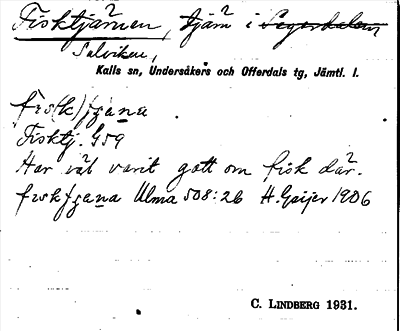 Fisktjärnen, tjärn i Segerdalen
Salviken,
Kalls sn, Undersåkers och Offerdals tg, Jämtl. l.
fis(k)tjana
Fisktj. G59
Har väl varit gott om fisk där.
fisktjana Ulma 508:26 H. Geijer 1906
C. LINDBERG 1931.